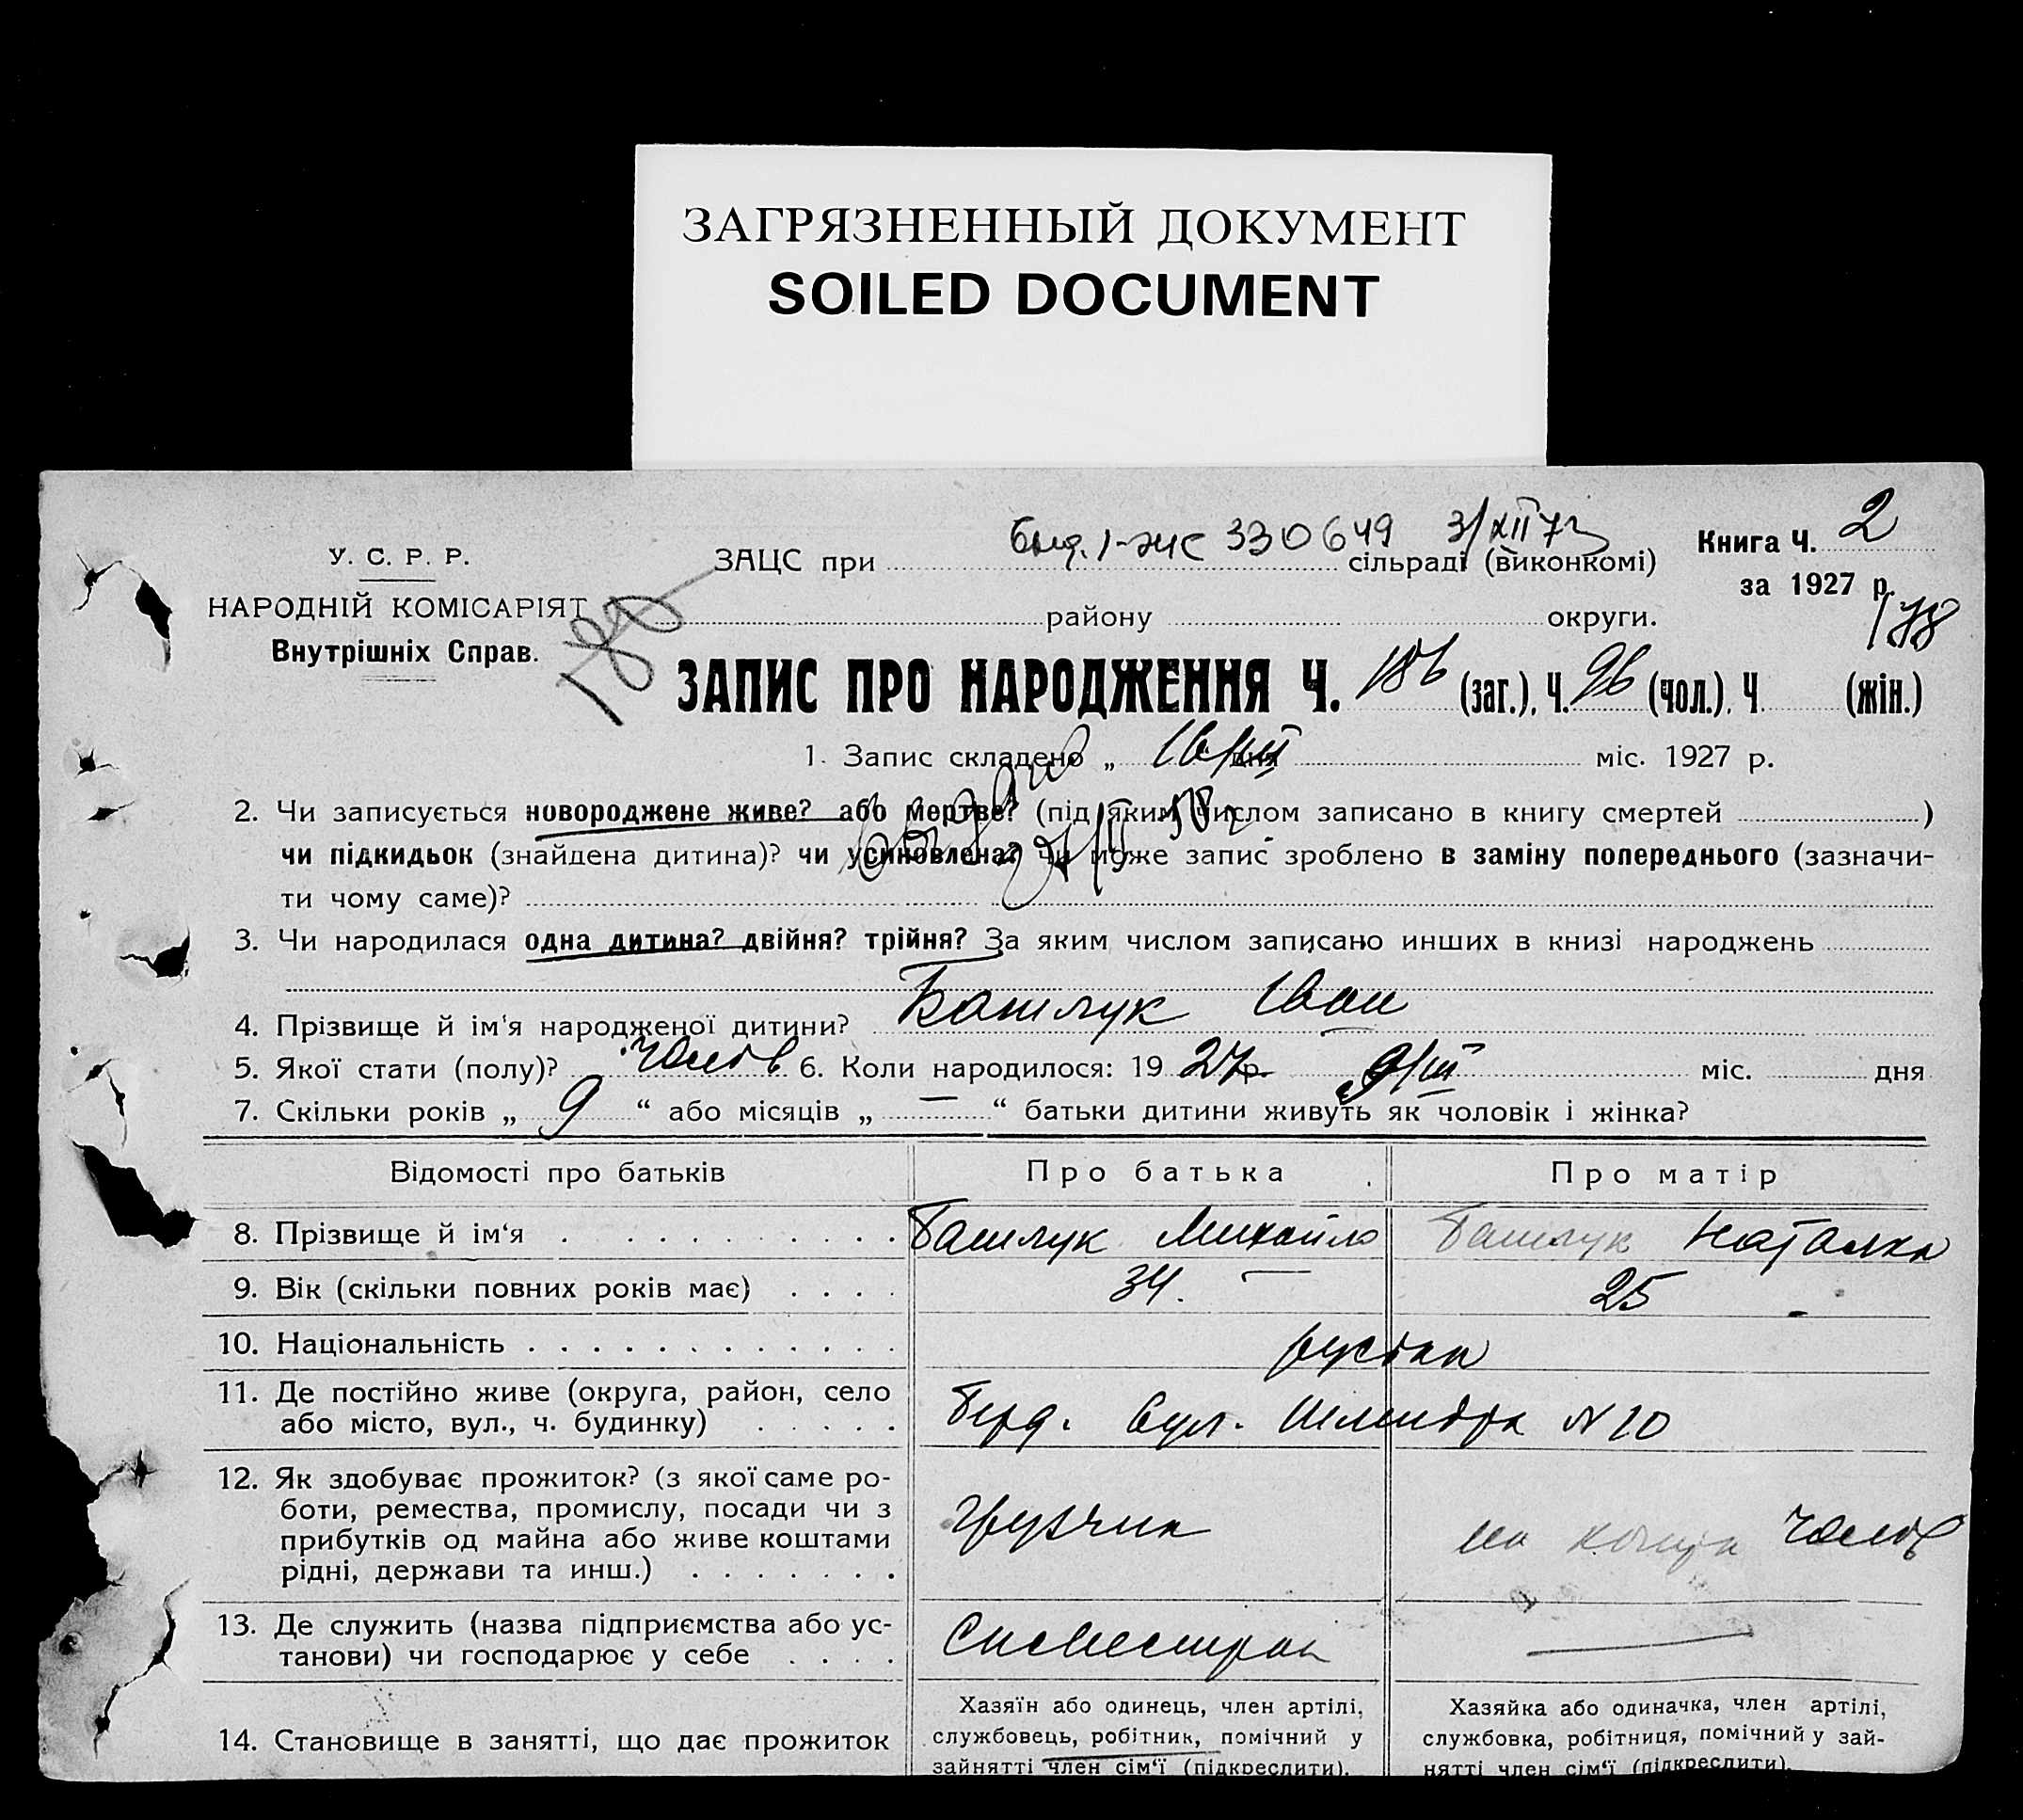 ЗАГРЯЗНЕННЫЙ ДОКУМЕНТ
SOILED DOCUMENT
330649 3/XII 73
Книга Ч. 2
за 1927 р.
178
У. С. Р. Р.
НАРОДНІЙ КОМІСАРІЯТ
Внутрішніх Справ.
ЗАЦС при сільраді (виконкомі)
району округи.
ЗАПИС ПРО НАРОДЖЕННЯ Ч. 186 (заг.), Ч. 96 (чол.), Ч. (жін.)
1. Запис складено „ 16/III дня міс. 1927 р.
2. Чи записується новороджене живе? або мертве? (під яким числом записано в книгу смертей )
чи підкидьок (знайдена дитина)? чи усиновлена? чи може запис зроблено в заміну попереднього (зазначи-
ти чому саме)?
3. Чи народилася одна дитина? двійня? трійня? За яким числом записано инших в книзі народжень
4. Прізвище й ім'я народженої дитини? Башлук Іван
5. Якої стати (полу)? чолов 6. Коли народилося: 19 27 р. 9/III міс. дня
7. Скільки років „ 9 “ або місяців „ — “ батьки дитини живуть як чоловік і жінка?
Відомості про батьків Про батька Про матір
8. Прізвище й ім'я Башлук Михайло Башлук Наталка
9. Вік (скільки повних років має) 34. — 25 -
10. Національність руська
11. Де постійно живе (округа, район, село
або місто, вул., ч. будинку) Берд. вул. N 10
12. Як здобуває прожиток? (з якої саме ро-
боти, ремества, промислу, посади чи з
прибутків од майна або живе коштами
рідні, держави та инш.) грузчик на чолов
13. Де служить (назва підприємства або ус-
танови) чи господарює у себе —
14. Становище в занятті, що дає прожиток
Хазяїн або одинець, член артілі,
службовець, робітник, помічний у
зайнятті член сім'ї (підкреслити).
Хазяйка або одиначка, член артілі,
службовка, робітниця, помічний у зай-
нятті член сім'ї (підкреслити).